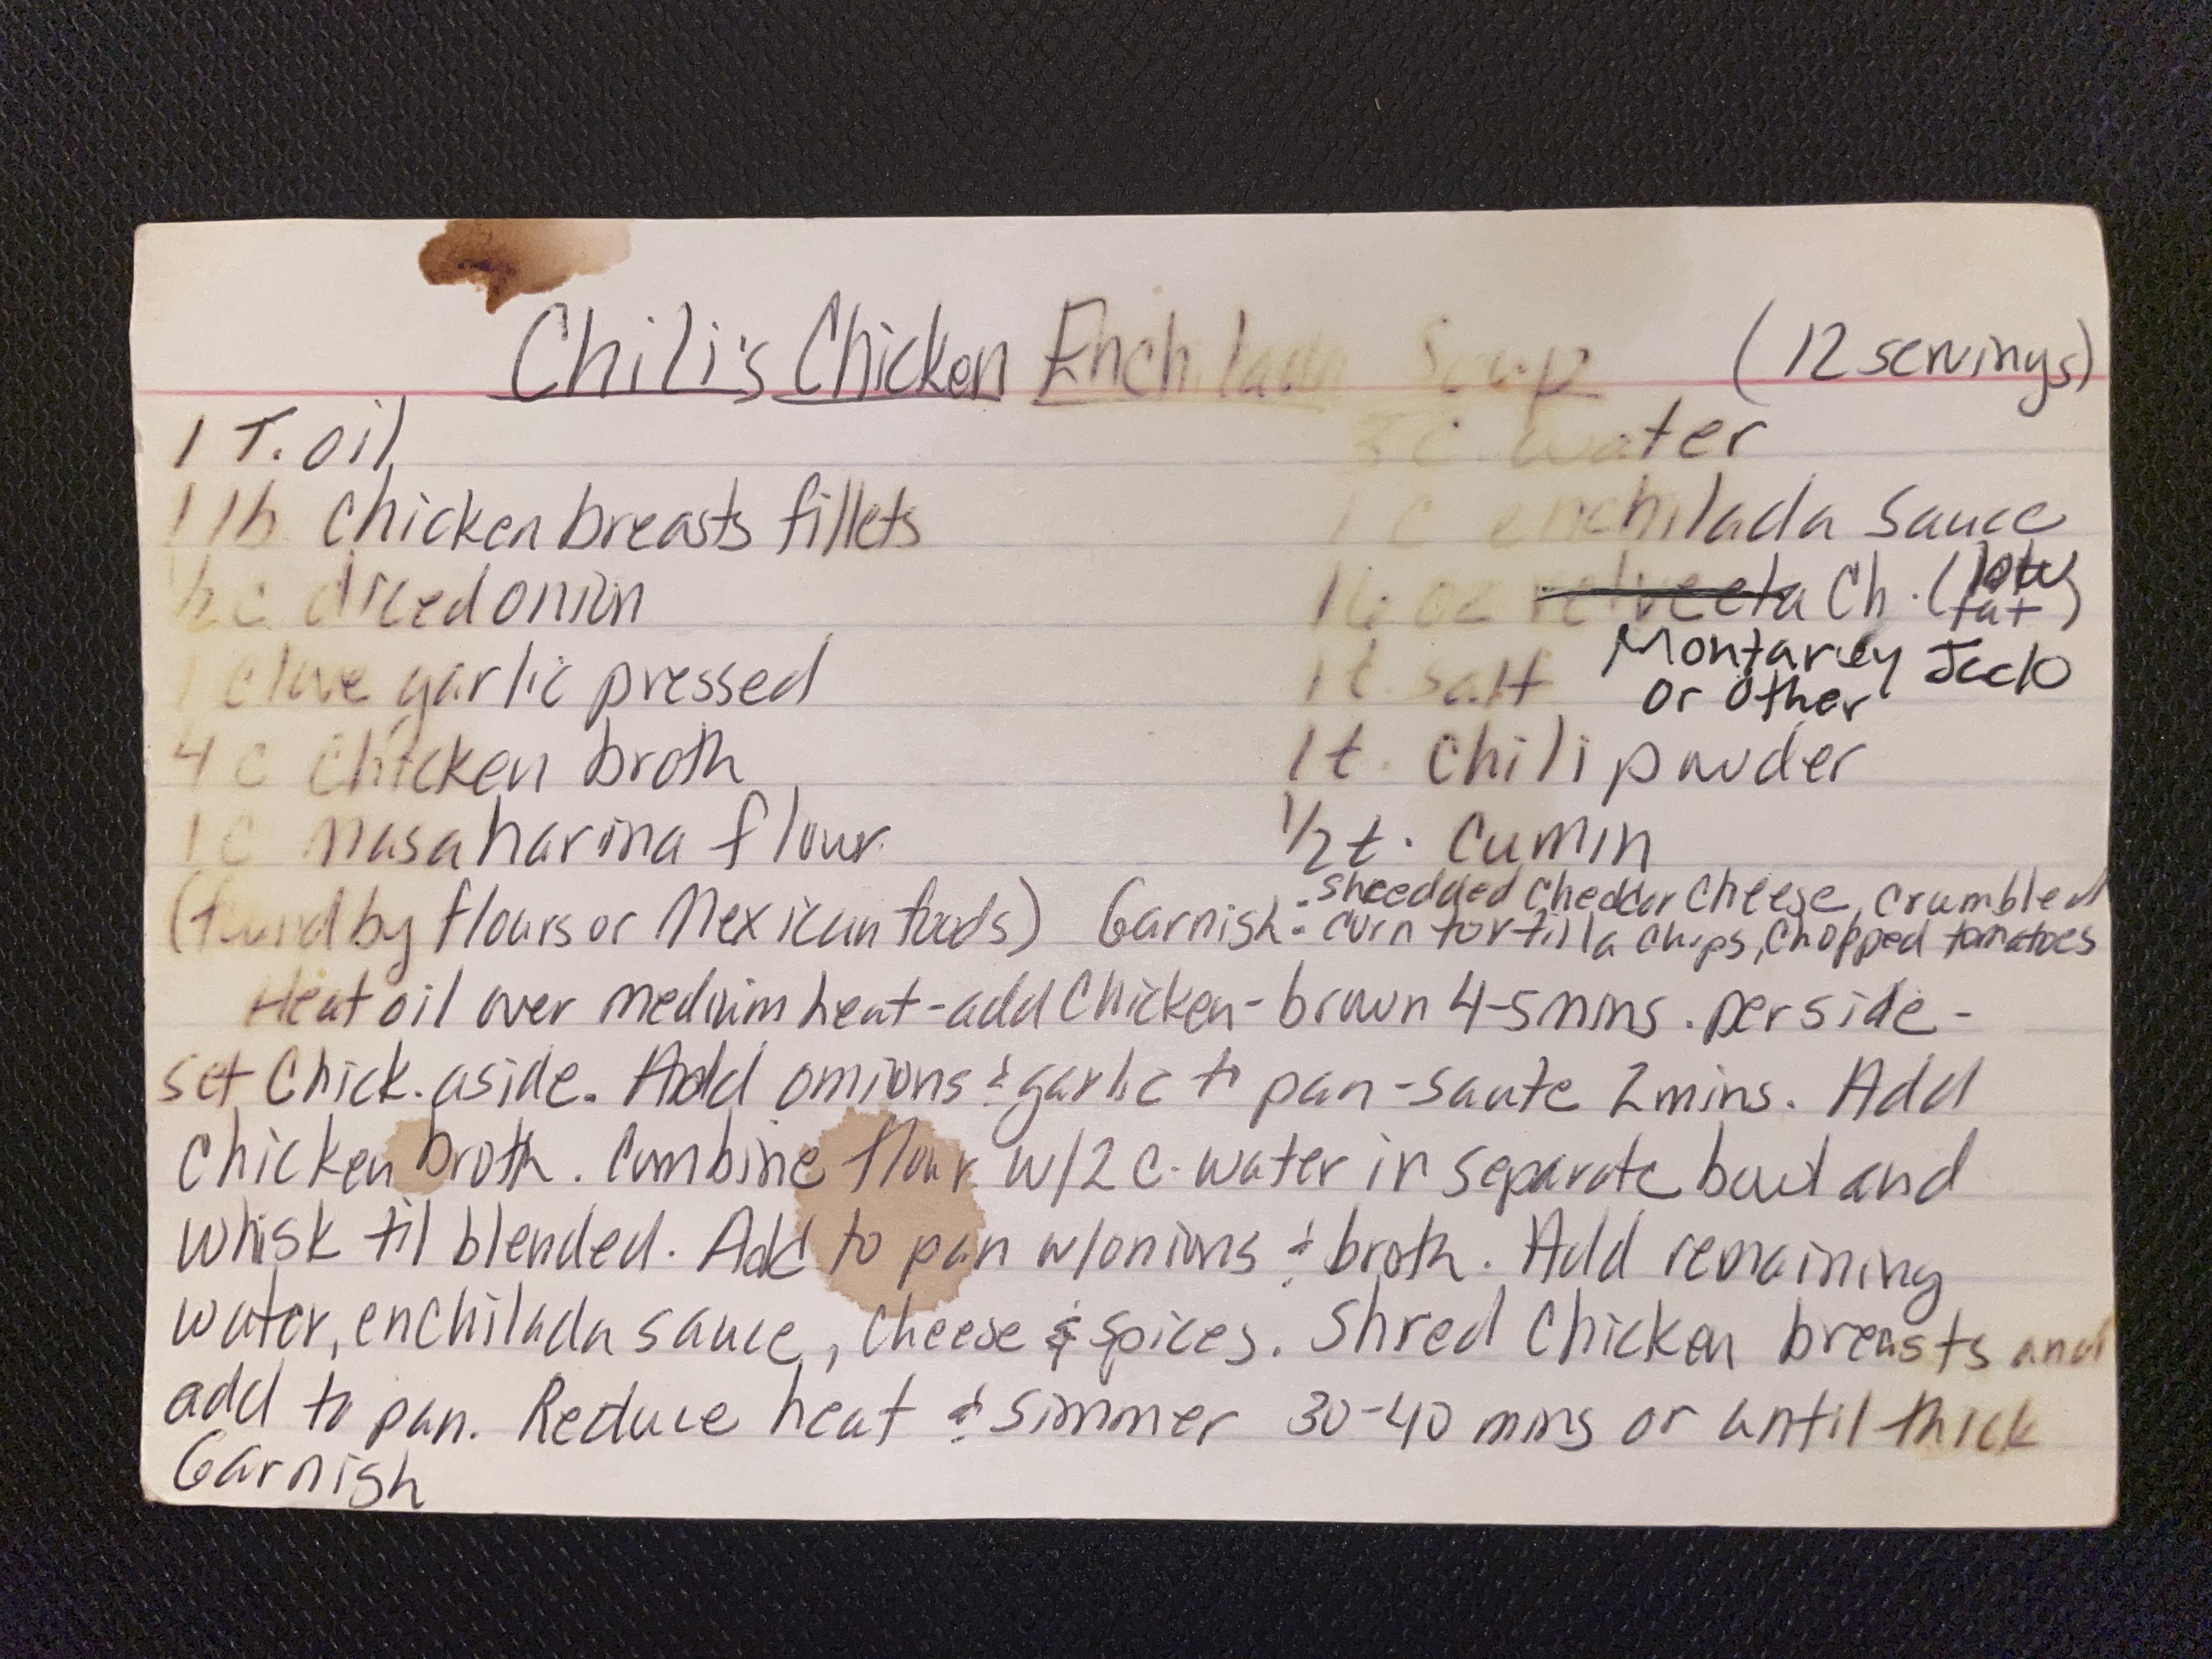 Chili's Chicken Enchilada Soup (12 servings)
1 T. oil
1 lb chicken breasts fillets
1/2 c diced onion
1 clove garlic pressed
4 c chicken broth
1 c masa harina flour
(found by flours or Mexican foods)
3 c. water
1 c enchilada sauce
16 oz velveeta Ch. (low fat)
Montarey Jack
or other
1 t. salt
1 t. chili powder
1/2 t. cumin
Garnish: shredded cheddar cheese, crumbled
corn tortilla chips, chopped tomatoes
Heat oil over medium heat - add chicken - brown 4-5 mins. per side -
set chick. aside. Add omions & garlic to pan - saute 2 mins. Add
chicken broth. Combine flour w/2 c. water in separate bowl and
whisk til blended. Add to pan w/onions & broth. Add remaining
water, enchilada sauce, cheese & spices. Shred chicken breasts and
add to pan. Reduce heat & simmer 30-40 mins or until thick
Garnish